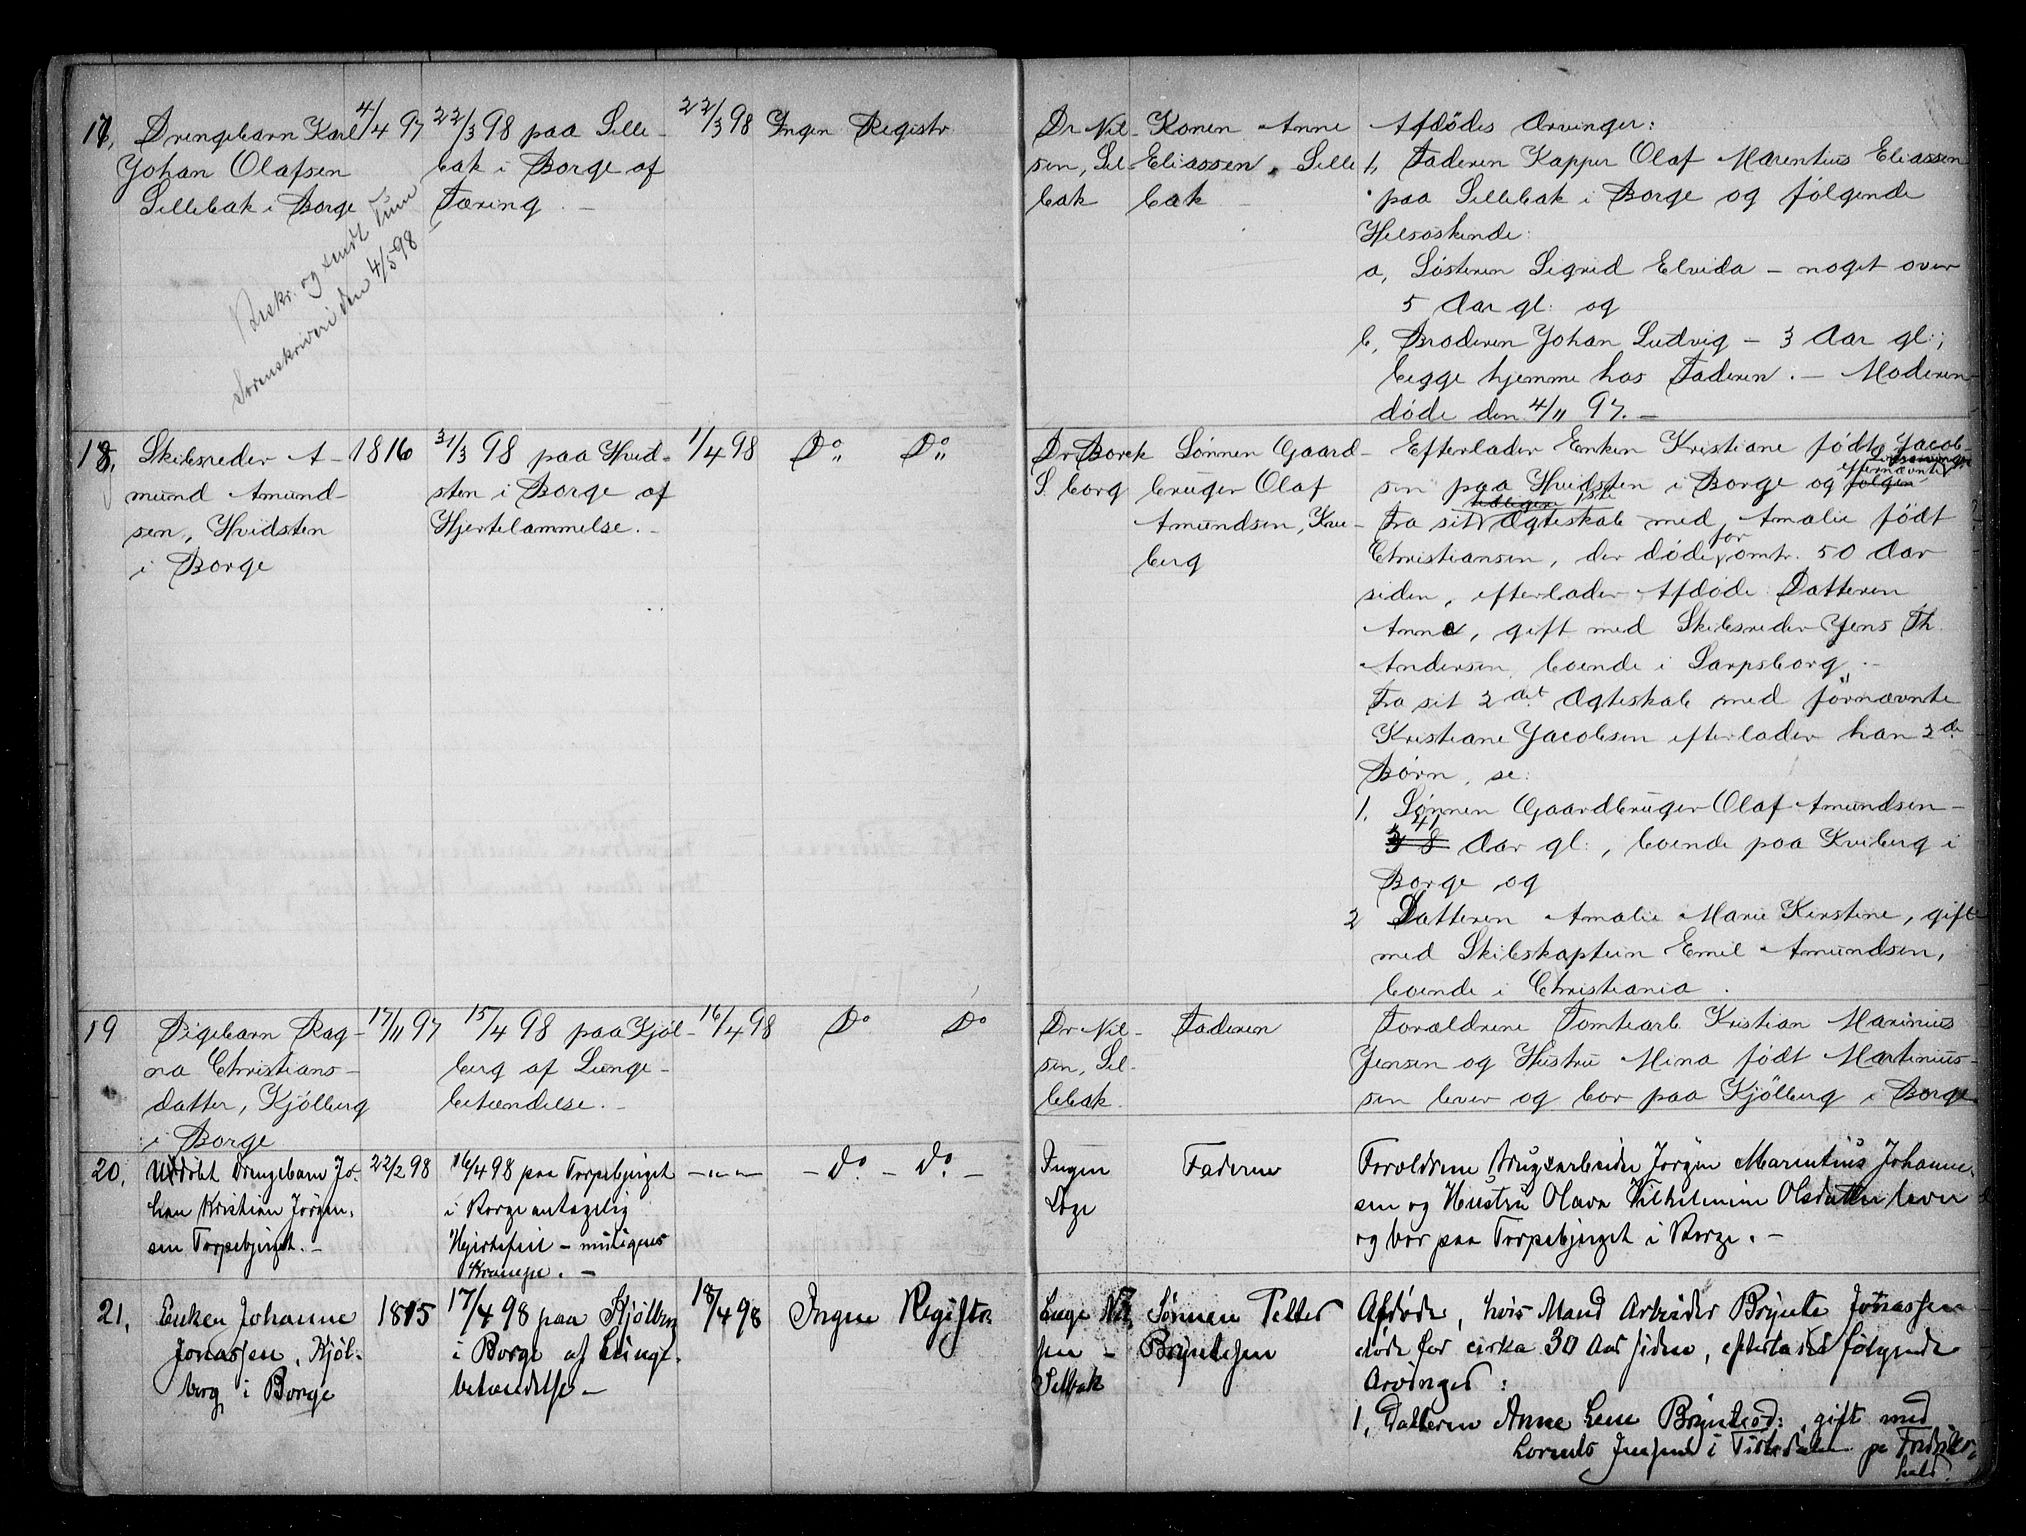 17, Drengebarn Karl
Johan Olafsen
Sillebak i Borge
4/4 97
22/3 98 paa Sille-
bak i Borge af
Tæring. -
22/3 98
Ingen Registr
Beskr. og sendt Tune
Sorenskriveri den 4/5 98
Dr Nil-
sen, Sil-
bak
Konen Anne
Eliassen, Sille
bak
Afdødes Arvinger:
1, Faderen Kapper Olaf Marentius Eliassen
paa Sillebak i Borge og følgende
Helsøskende:
a, Søsteren Sigrid Elvida - noget over
5 Aar gl: og
b, Broderen Johan Ludvig - 3 Aar gl:,
begge hjemme hos Faderen. - Moderen
døde den 4/11 97. -
18, Skibsreder A-
mund Amund-
sen, Hvidsten
i Borge
1816
31/3 98 paa Hvid-
sten i Borge af
Hjertelammelse. -
1/4 98
Do Do
Dr Borch
S. borg
Sønnen Gaard-
bruger Olaf
Amundsen, Kre-
berg
Efterlader Enken Kristiane født Jacob-
sen paa Hvidsten i Borge og
efternævnte
følgen
tidligere 1ste
Fra sit Ægteskab med, Amalie født
Christiansen, der døde for omtr. 50 Aar
siden, efterlader Afdøde Datteren
Anne, gift med Skibsreder Jens Th.
Andersen, boende i Sarpsborg. -
Fra sit 2det Ægteskab med førnævnte
Kristiane Jacobsen efterlader han 2de
Børn, se:
1. Sønnen Gaardbruger Olaf Amundsen -
41
38 Aar gl:, boende paa Kreberg i
Borge og
2 Datteren Amalie Marie Kirstine, gift
med Skibskaptein Emil Amundsen,
boende i Christiania.
19 Pigebarn Rag-
na Christians-
datter, Kjölberg
i Borge
17/11 97
15/4 98 paa Kjöl-
berg af Lunge-
betændelse. -
16/4 98
Do Do
Dr Nil-
sen, Sil-
lebak.
Faderen
Forældrene Tomtearb. Kristian Marinius
Jensen og Hustru Mina født Martinius-
sen lever og bor paa Kjölberg i Borge
20, Udøbt Drengebarn Jo-
han Kristian Jörgen-
sen Torpebjerget. -
22/2 98
16/4 98 paa Torpebjerget
i Borge antagelig
Hjertefeil - muligens
Krampe. -
- " -
- Do - Do -
Ingen
Læge
Faderen
Forældrene Brugsarbeider Jörgen Marentius Johanne-
sen og Hustru Olava Vilhelmine Olsdatter lever
og bor paa Torpebjerget i Borge. -
21, Enken Johanne
Jonassen, Kjöl-
berg i Borge
1815
17/4 98 paa Kjölberg
i Borge af Lunge-
betændelse -
18/4 98
Ingen Registr.
Læge Nil-
sen -
Selbak
Sönnen Petter
Bryntesen
Afdöde, hvis Mand Arbeider Brynte Jonassen
döde for cirka 30 Aar siden, efterlader fölgende
Arvinger:
1, Datteren Anne Lene Bryntesd:, gift med
Lorents Jensen i Tistedalen pr Fredriks-
hald.